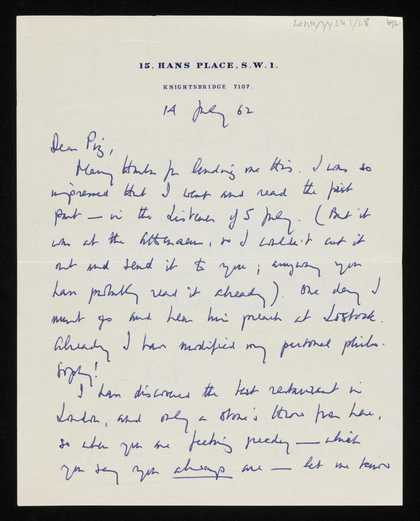 15, HANS PLACE, S.W.1.
KNIGHTSBRIDGE 7107.
14 July 62
Dear Pig,
Many thanks for lending me this. I was so
impressed that I went and read the first
part — in the Listener of 5 July. (But it
was at the Athenaeum, so I couldn't cut it
out and send it to you; anyway you
have probably read it already). One day I
must go and hear him preach at
Already I have modified my personal philo-
sophy!
I have discovered the best restaurant in
London, and only a stone's throw from here,
so when you are feeling greedy — which
you say you always are — let me know